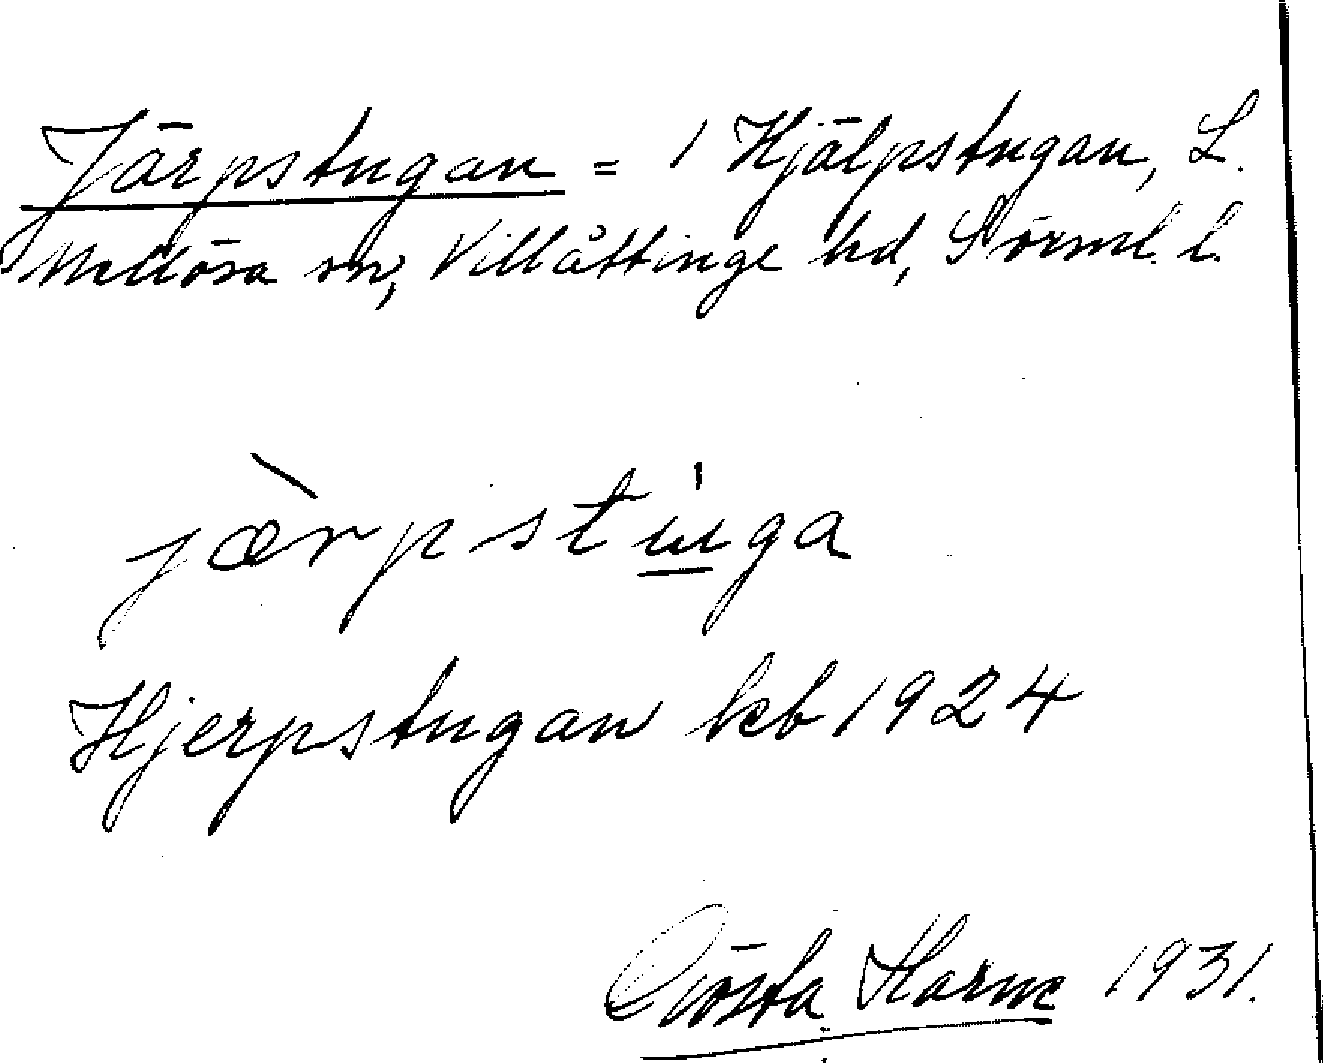 Järpstugan = 1 Hjälpstugan, L.
Mellösa sn, Villåttinge hd, Sörml. l.
jæ̀rpstu̲̍ga
Hjerpstugan kb 1924
Gösta Harne 1931.